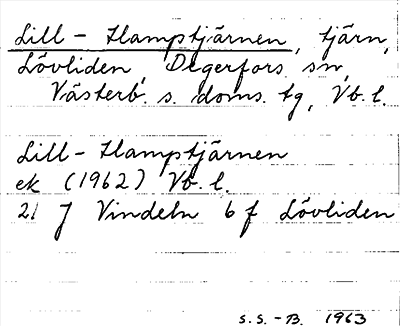 Lill-Hampstjärnen, tjärn,
Lövliden, Degerfors sn,
Västerb. s. doms. tg, Vb. l.
Lill-Hampstjärnen
ek (1962) Vb. l.
21 J Vindeln 6 f Lövliden
S.S.-B. 1963